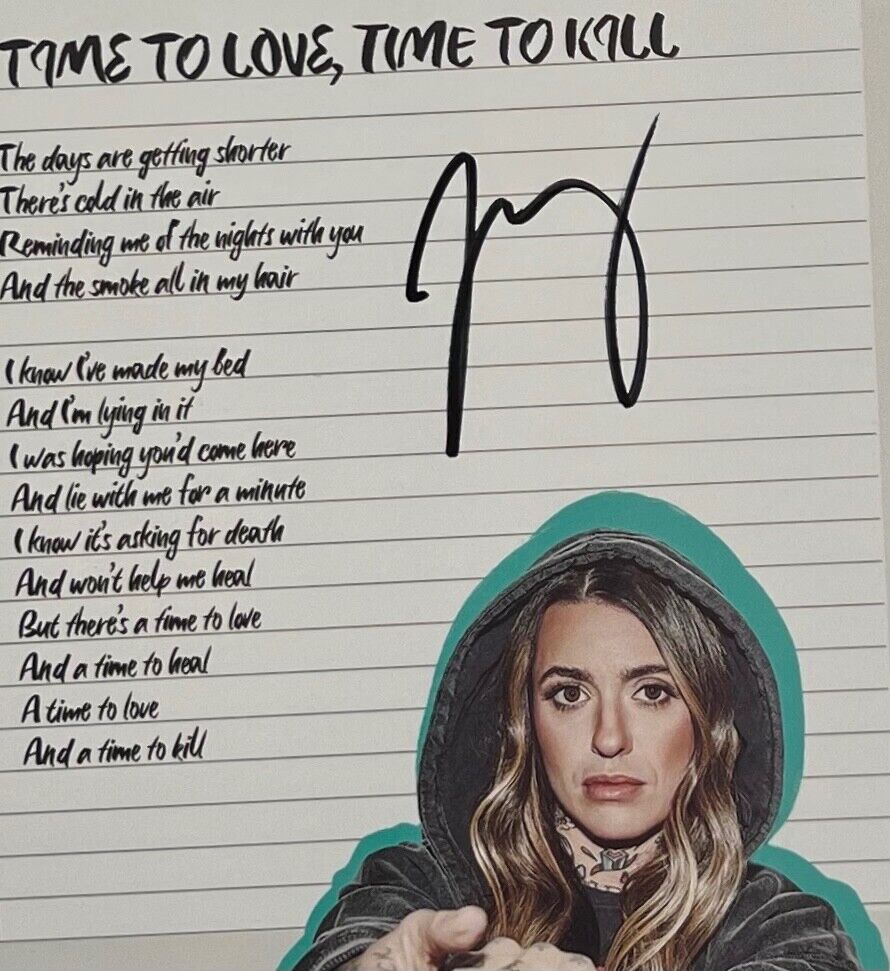 TIME TO LOVE, TIME TO KILL
The days are getting shorter
There's cold in the air
Reminding me of the nights with you
And the smoke all in my hair
I know I've made my bed
And I'm lying in it
I was hoping you'd come here
And lie with me for a minute
I know it's asking for death
And won't help me heal
But there's a time to love
And a time to heal
A time to love
And a time to kill